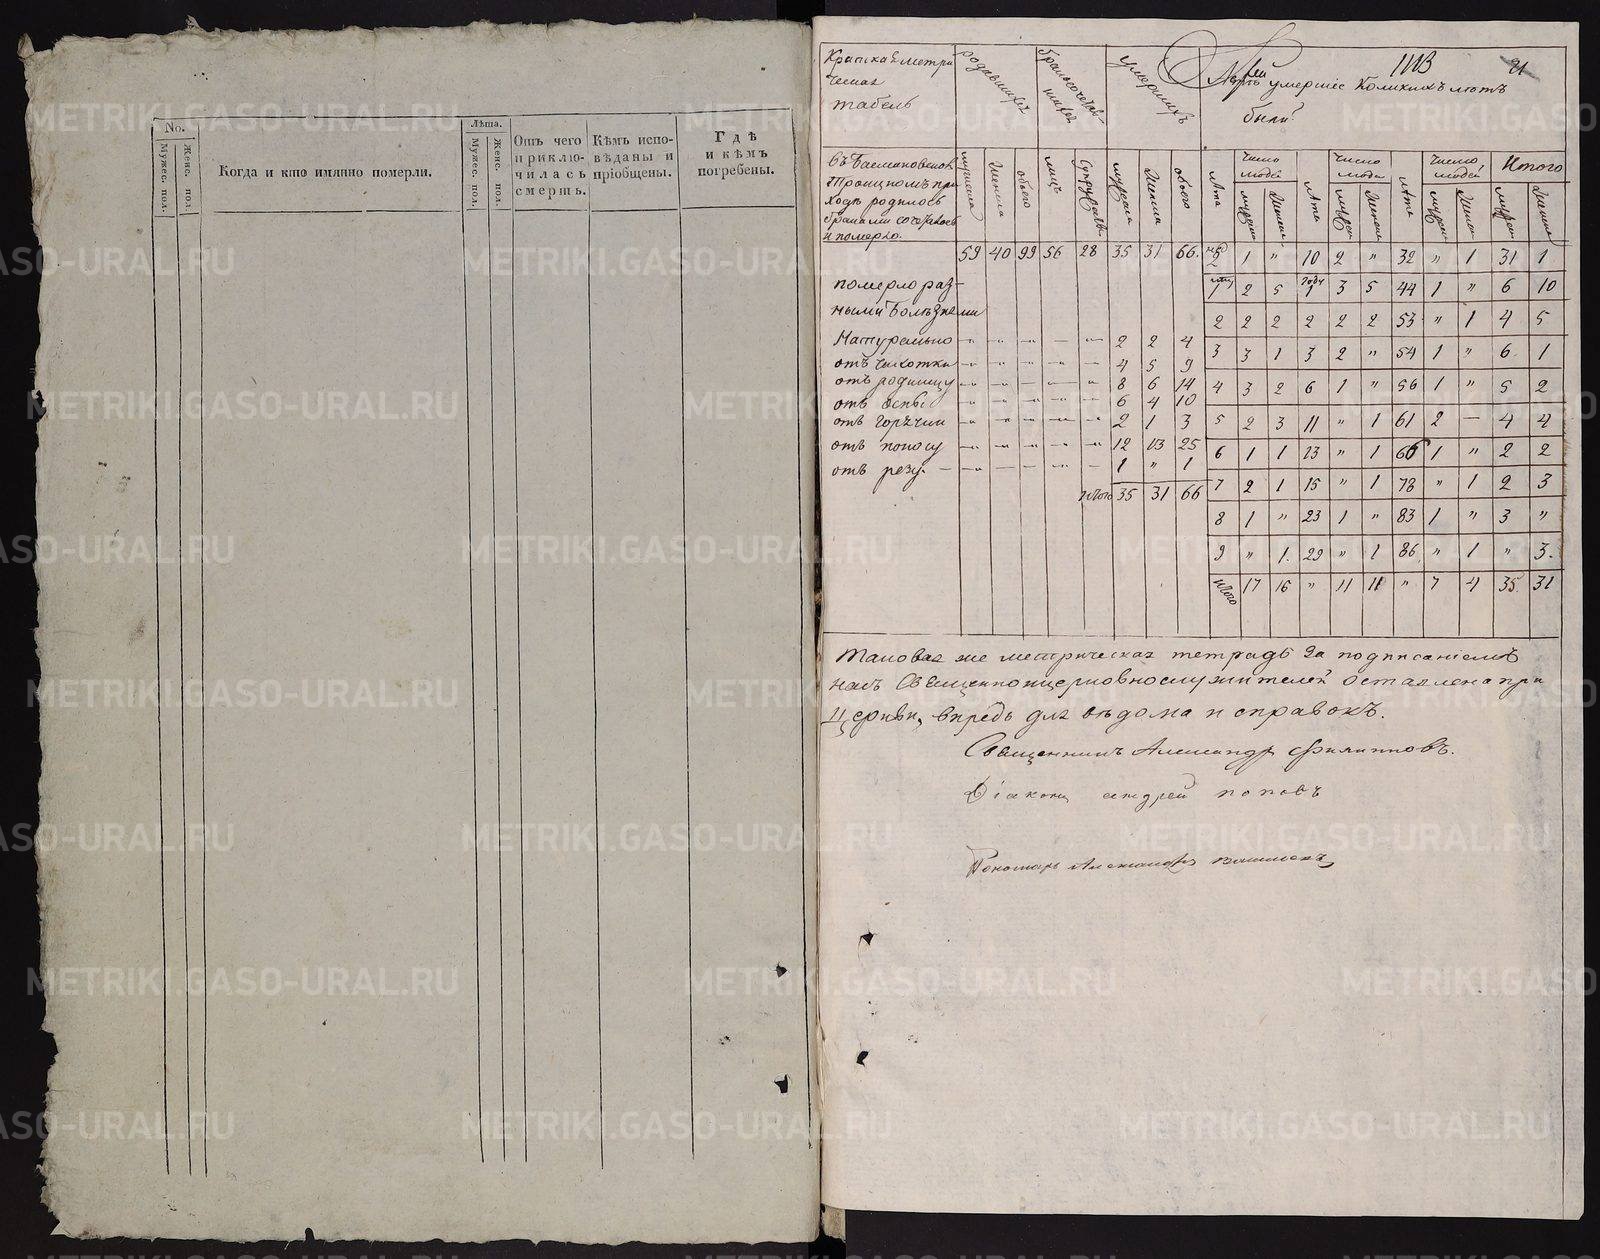 No.
Мужес. пол.
Женс. пол.
Когда и кто имянно померли.
Лѣта.
Мужес. пол.
Женс. пол.
Отъ чего
приклю-
чилась
смерть.
Кѣмъ испо-
вѣданы и
пріобщены.
Гдѣ
и кѣмъ
погребены.
Краткая метри
ческая
табель
родившихся
бракосочетав-
шихся
умершихъ
1113
21
умершіе Коликихъ лѣтъ
были?
въ Басмановской
Троицкомъ при
ходѣ родилось
браками сочеталось
и померло.
мужеска
Женска
обоего
лицъ
Супружествъ
мужеска
Женска
обоего
Лѣта
Число
людей
мужеска
Женска
Лѣта
Число
людей
мужеска
Женска
Лѣта
Число
людей
мужеска
Женска
Итого
мужеска
Женска
59 40 99 56 28 35 31 66.
5 1 " 10 2 " 32 " 1 31 1
1 2 5 годы 1 3 5 44 1 " 6 10
2 2 2 2 2 2 53 " 1 4 5
3 3 1 3 2 " 54 1 " 6 1
4 3 2 6 1 " 56 1 " 5 2
5 2 3 11 " 1 61 2 — 4 4
6 1 1 13 " 1 66 1 " 2 2
7 2 1 15 " 1 78 " 1 2 3
8 1 " 23 1 " 83 1 " 3 "
9 " 1. 29 " 1 86 " 1 " 3.
итого 17 16 " 11 11 " 7 4 35. 31
померло раз-
ными болѣзнями
Натурально 2 2 4
отъ чахотки 4 5 9
отъ родимцу 8 6 14
отъ оспы 6 4 10
отъ горячки 2 1 3
отъ поносу 12 13 25
отъ резу. 1 " 1
итого 35 31 66
Таковая же метрическая тетрадь за подписаніемъ
насъ Священноицерковнослужителей оставлена при
Церкви, впредь для вѣдома и справокъ.
Священникъ Александръ Филипповъ.
Діаконъ андрей поповъ
Пономарь Александръ
METRIKI.GASO-URAL.RU